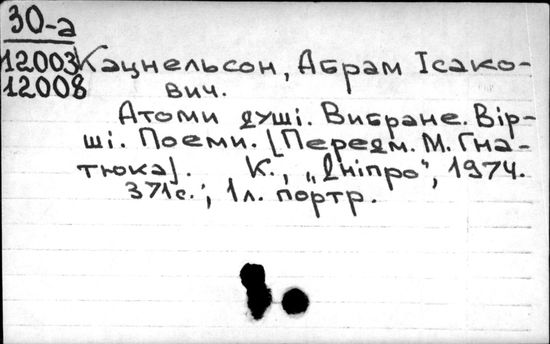 30-а
12003 Кацнельсон, Абрам Ісако-
12008 вич.
Атоми душі. Вибране. Вір-
ші. Поеми. [Передм. М. Гна-
тюка]. К., „Дніпро", 1974.
371с.; 1л. портр.